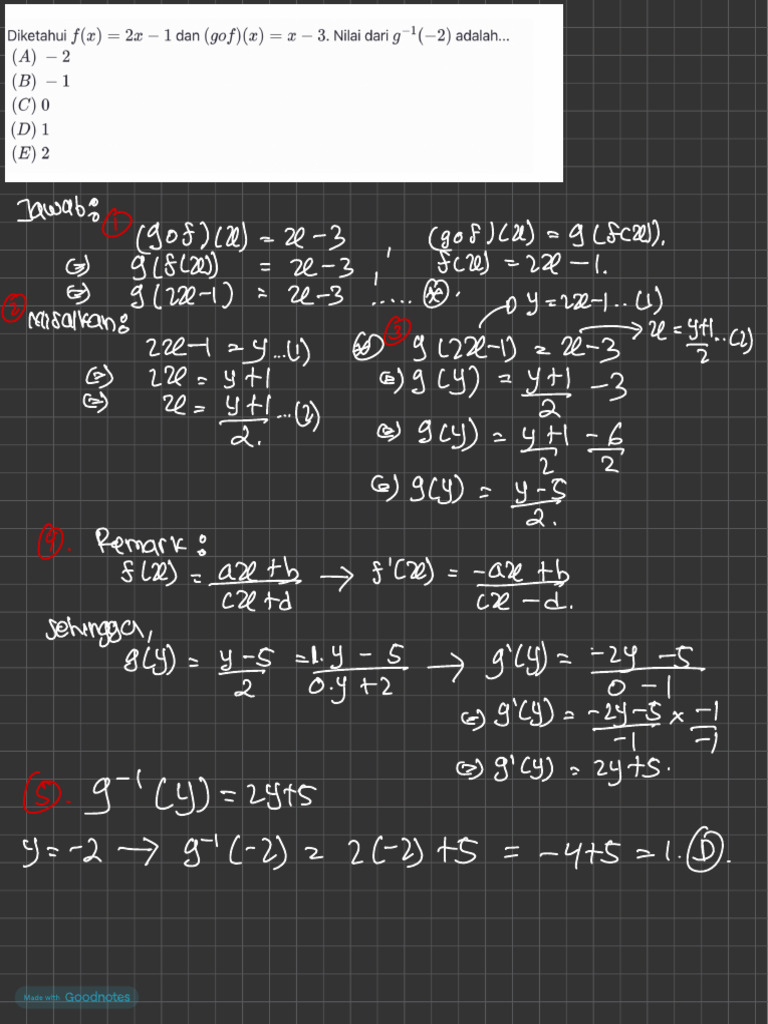 Diketahui f(x) = 2x − 1 dan (gof)(x) = x − 3. Nilai dari g⁻¹(−2) adalah...
(A) − 2
(B) − 1
(C) 0
(D) 1
(E) 2
Jawab:
① (gof)(x) = x - 3 , (gof)(x) = g(f(x)).
⇔ g(f(x)) = x - 3 , f(x) = 2x - 1.
⇔ g(2x-1) = x - 3 ..... (*).
② Misalkan:
2x-1 = y ...(1)
⇔ 2x = y+1
⇔ x = (y+1)/2 ...(2)
③ y = 2x-1 .. (1)
(*) g(2x-1) = x - 3 → x = (y+1)/2 ..(2)
⇔ g(y) = (y+1)/2 - 3
⇔ g(y) = (y+1)/2 - 6/2
⇔ g(y) = (y-5)/2.
④. Remark:
f(x) = (ax+b)/(cx+d) → f'(x) = (-ax+b)/(cx-d).
sehingga,
g(y) = (y-5)/2 = (1.y - 5)/(0.y+2) → g'(y) = (-2y-5)/(0-1)
⇔ g'(y) = (-2y-5)/-1 × -1/-1
⇔ g'(y) = 2y+5.
⑤. g⁻¹(y) = 2y+5
y = -2 → g⁻¹(-2) = 2(-2)+5 = -4+5 = 1. Ⓓ.
Made with Goodnotes